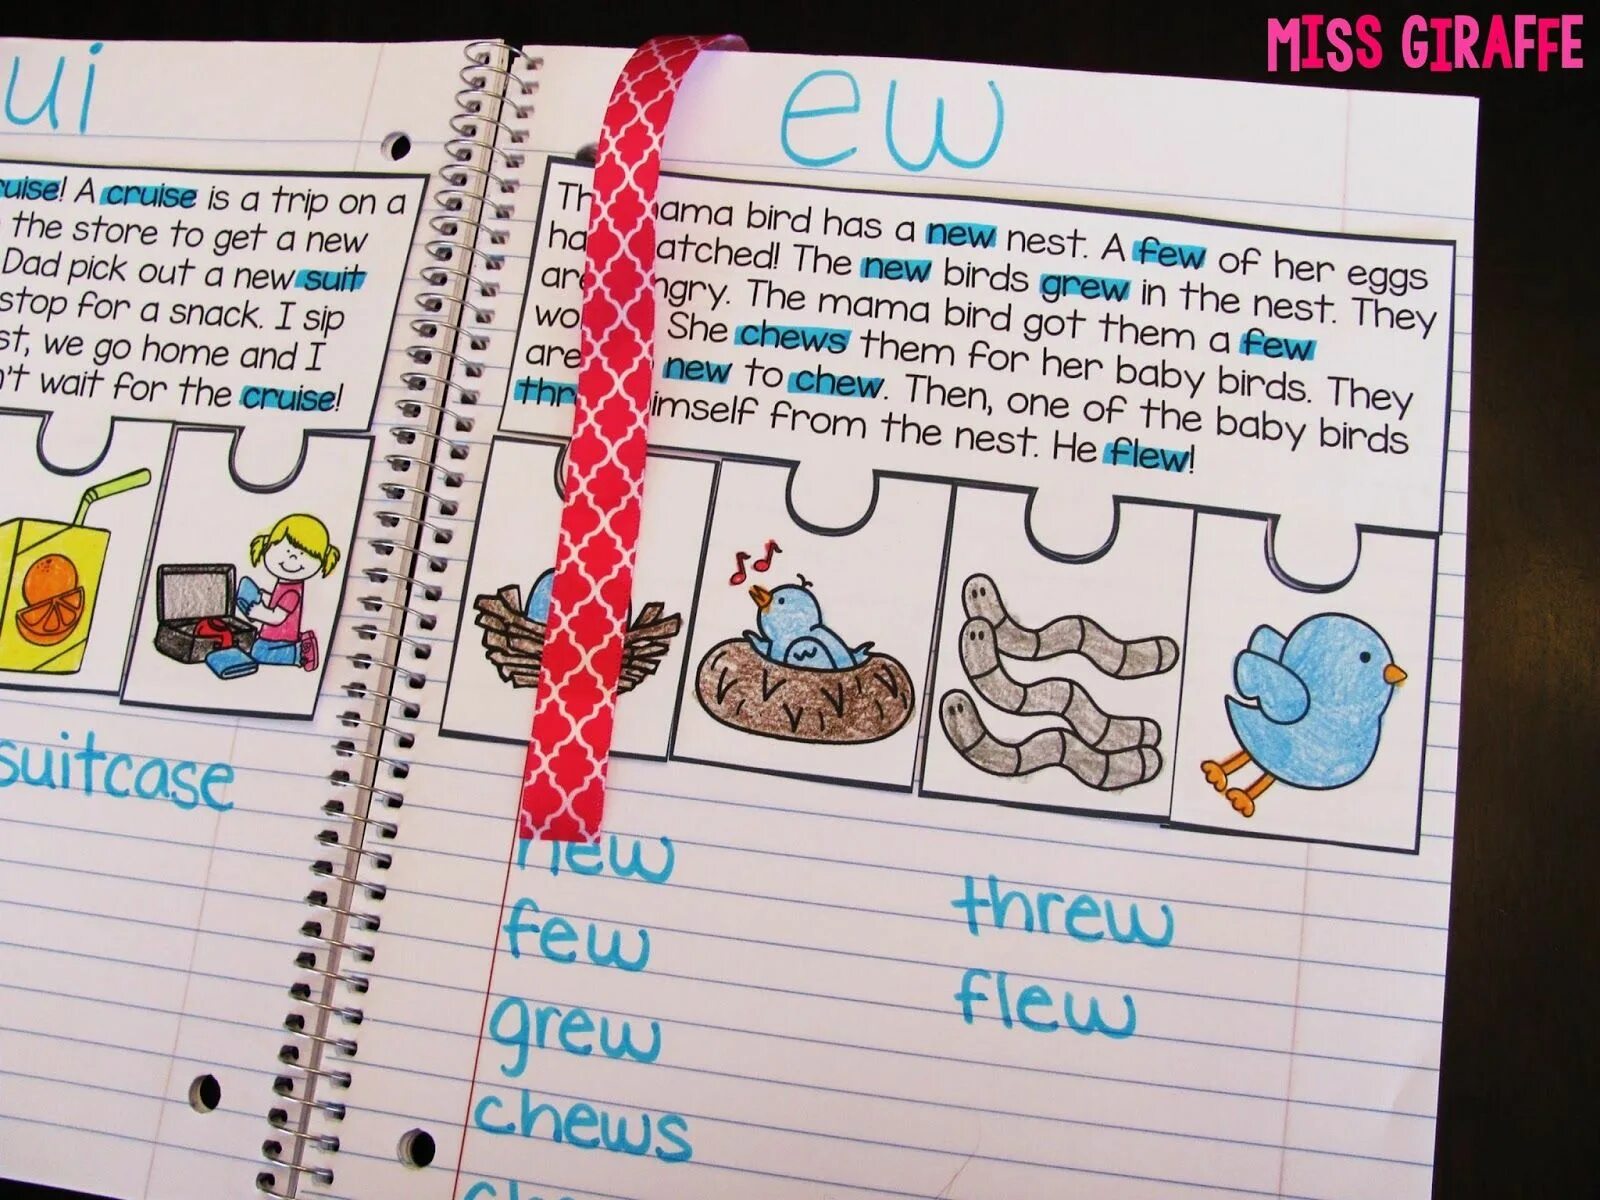 MISS GIRAFFE
ui
cruise! A cruise is a trip on a
the store to get a new
Dad pick out a new suit
stop for a snack. I sip
we go home and I
wait for the cruise!
suitcase
ew
mama bird has a new nest. A few of her eggs
hatched! The new birds grew in the nest. They
are hungry. The mama bird got them a few
She chews them for her baby birds. They
are new to chew. Then, one of the baby birds
himself from the nest. He flew!
new
few
grew
chews
threw
flew